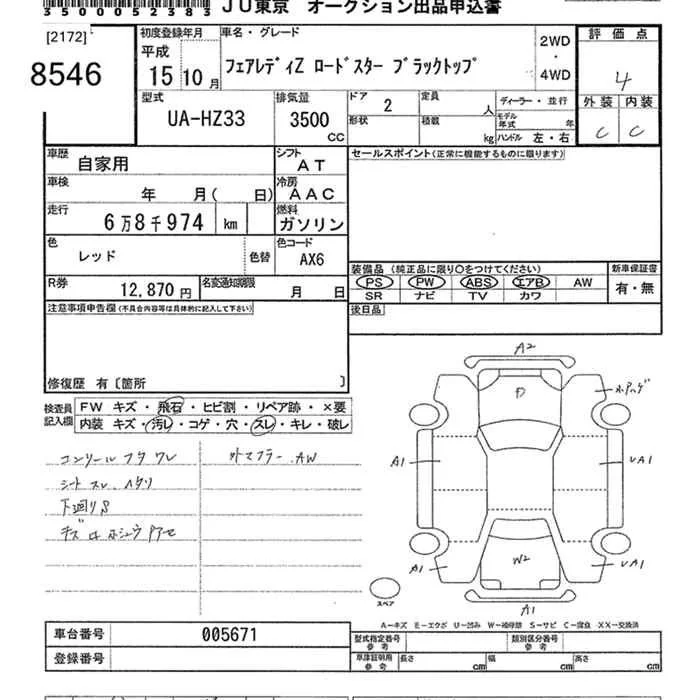 3500052383 JU東京 オークション出品申込書
[2172] 初度登録年月 車名・グレード 2WD・4WD 評価点
8546 平成 15年 10月 フェアレディZ ロードスター ブラックトップ 4
型式 排気量 ドア 2 定員 人 ディーラー・並行 外装 内装
UA-HZ33 3500 CC 形状 積載 kg モデル年式 年 C C
ハンドル 左・右
車歴 自家用 シフト AT セールスポイント(正常に機能するものに限ります)
車検 年 月( 日) 冷房 AAC
走行 6万8千974 km 燃料 ガソリン
色 レッド 色替 色コード AX6
装備品 (純正品に限り○をつけてください) 新車保証書
R券 12,870円 名変通知期限 月 日 PS PW ABS エアB AW 有・無
SR ナビ TV カワ
注意事項申告欄(不具合内容等は具体的に記入して下さい) 後日品
修復歴 有〔箇所 〕
検査員記入欄 FW キズ・飛石・ヒビ割・リペア跡・×要
内装 キズ・汚レ・コゲ・穴・スレ・キレ・破レ
コンソールフタ ワレ 外マフラー. AW
シート スレ. ヘタリ
下廻りS
A2
ア
A1 UA1
W2
A1 UA1
A1
スペア
A−キズ E−エクボ U−凹み W−補修跡 S−サビ C−腐食 XX−交換済
車台番号 005671 型式指定番号 参考 類別区分番号 参考
登録番号 車庫証明用 参考 長さ cm 幅 cm 高さ cm